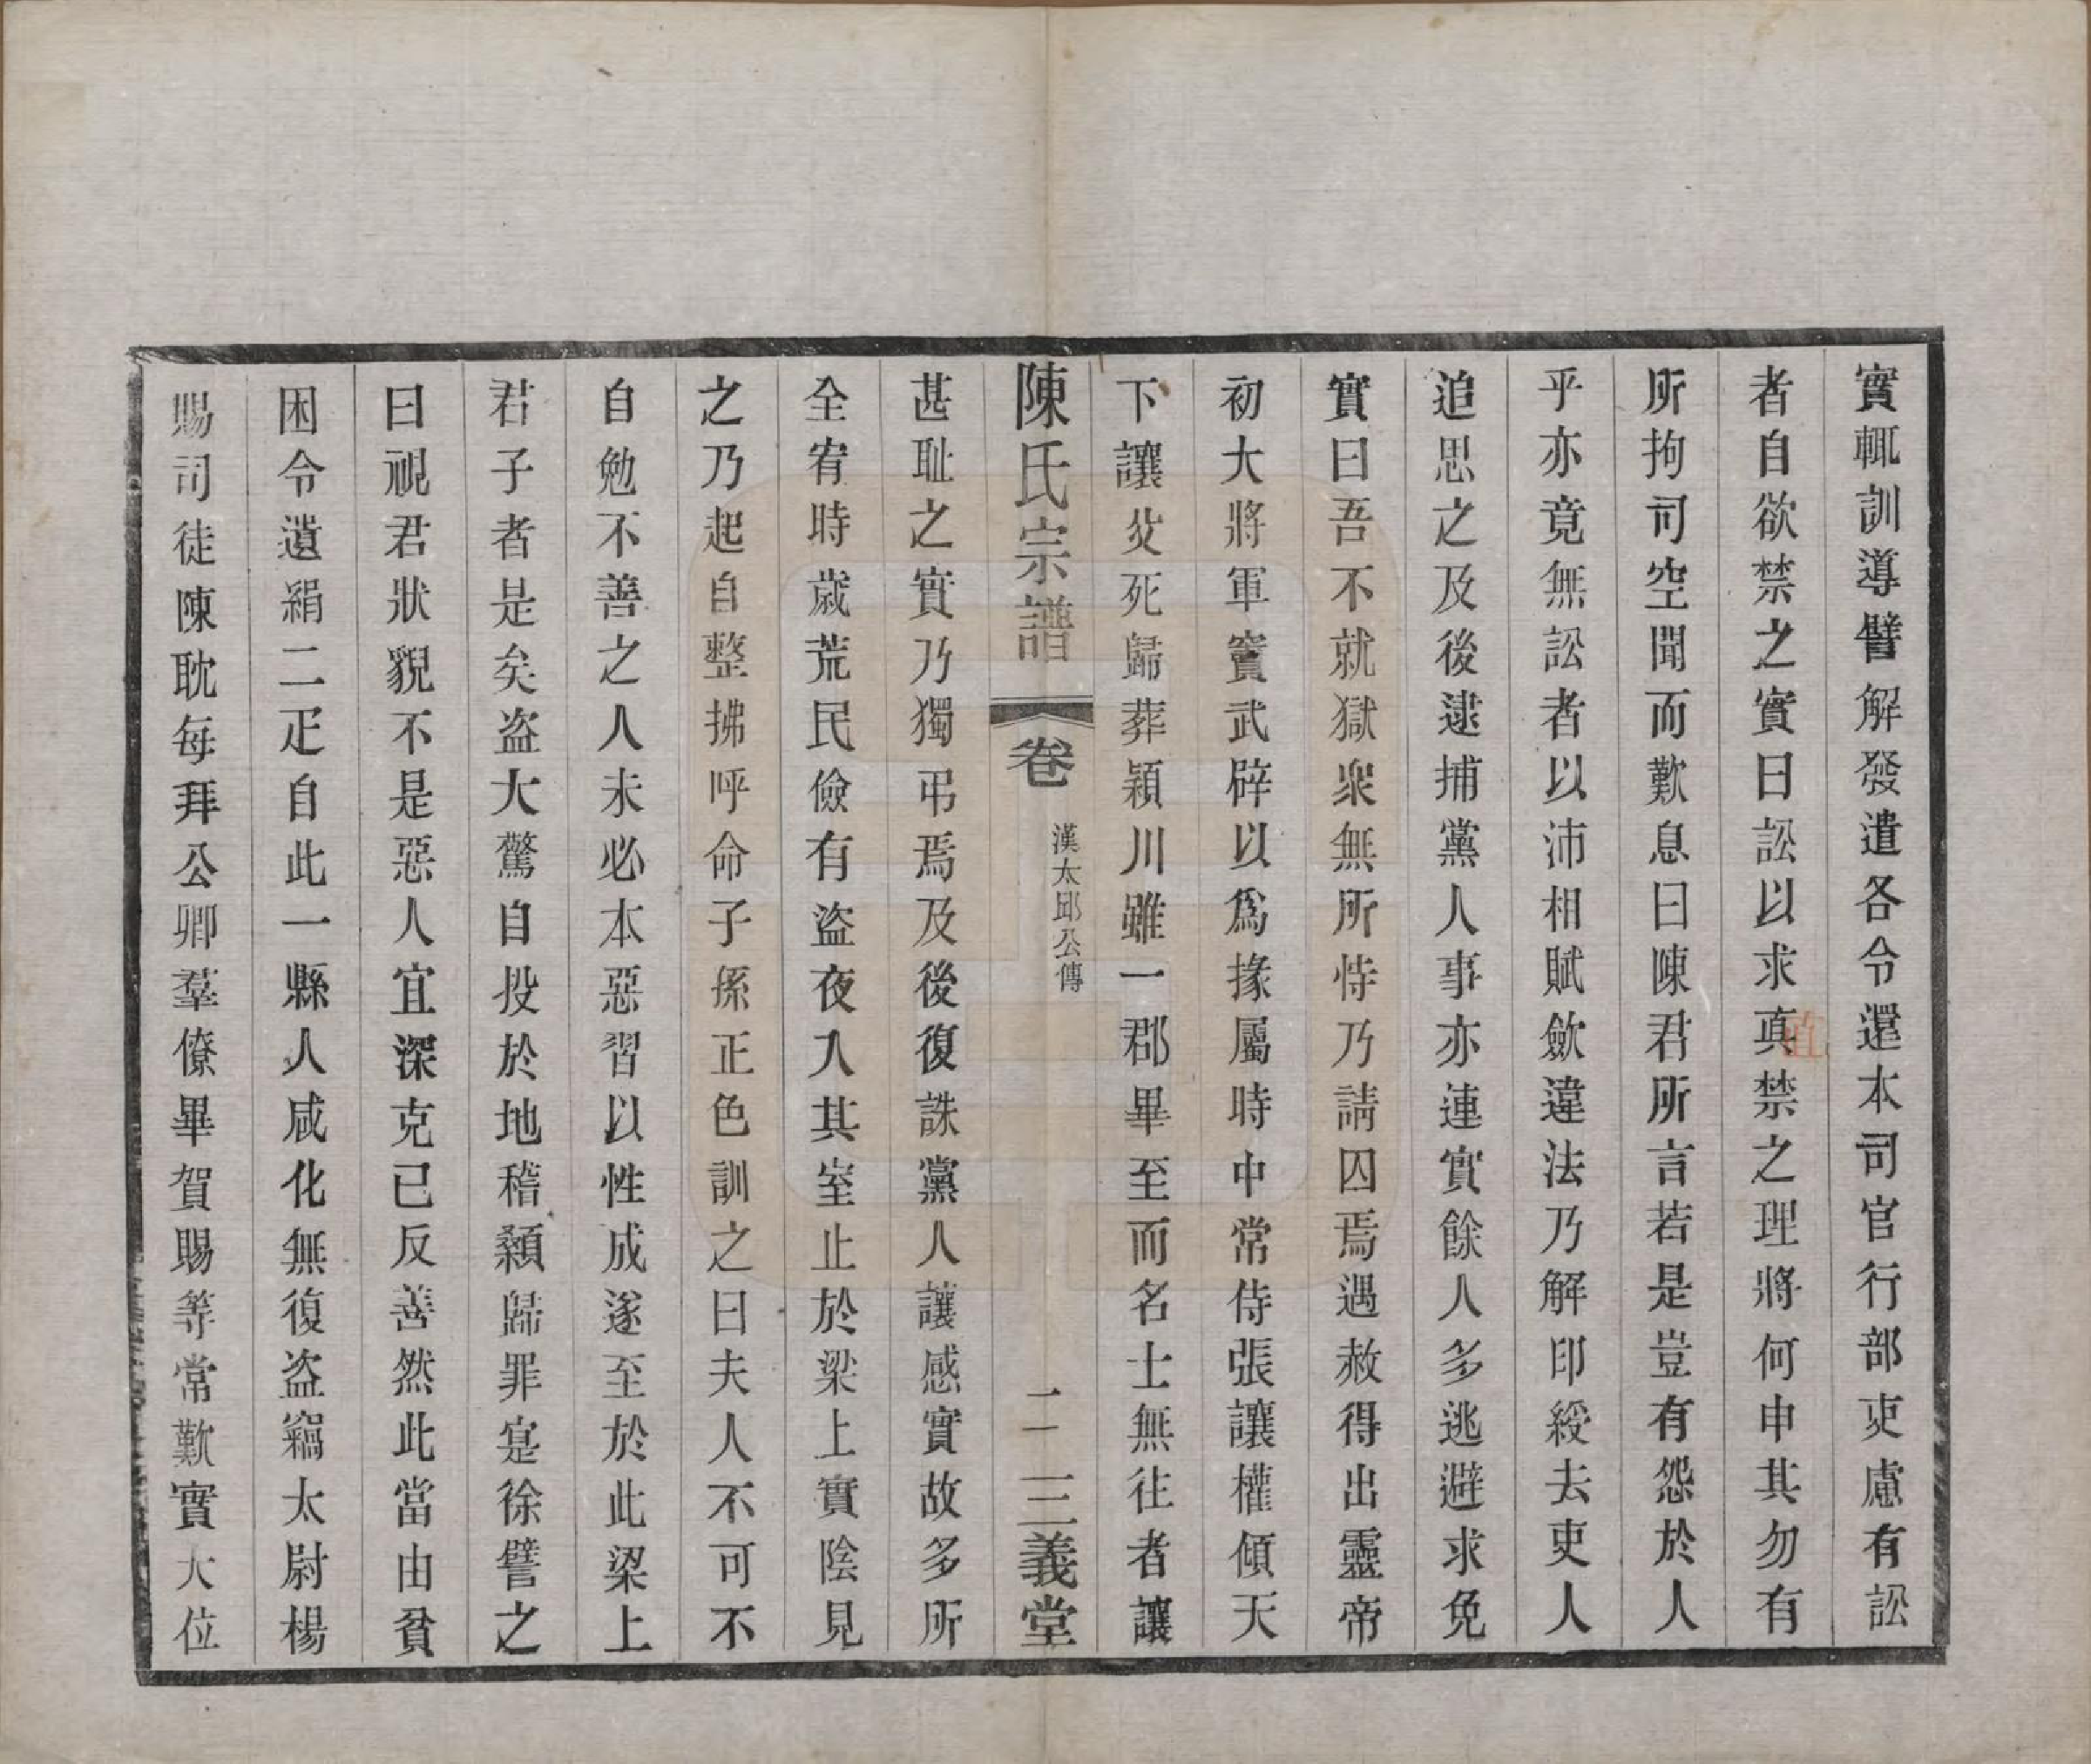 實輒訓導譬解發遣各令還本司官行部吏慮有訟
者自欲禁之實曰訟以求真禁之理將何申其勿有
直
所拘司空聞而歎息曰陳君所言若是豈有怨於人
乎亦竟無訟者以沛相賦斂違法乃解印綬去吏人
追思之及後逮捕黨人事亦連實餘人多逃避求免
實曰吾不就獄衆無所恃乃請囚焉遇赦得出靈帝
初大將軍竇武辟以爲掾屬時中常侍張讓權傾天
下讓父死歸葬潁川雖一郡畢至而名士無往者讓
陳氏宗譜 卷 漢太邱公傳 二 三義堂
甚耻之實乃獨弔焉及後復誅黨人讓感實故多所
全宥時歲荒民儉有盜夜入其室止於梁上實陰見
之乃起自整拂呼命子孫正色訓之曰夫人不可不
自勉不善之人未必本惡習以性成遂至於此梁上
君子者是矣盜大驚自投於地稽顙歸罪寔徐譬之
曰視君狀貌不是惡人宜深克已反善然此當由貧
困令遺絹二疋自此一縣人咸化無復盜竊太尉楊
賜司徒陳耽每拜公卿羣僚畢賀賜等常歎實大位